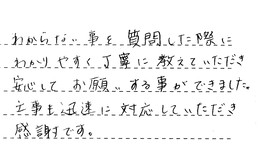 わからない事を質問した際に
わかりやすく丁寧に教えていただき
安心してお願いする事ができました。
工事も迅速に対応していただき
感謝です。